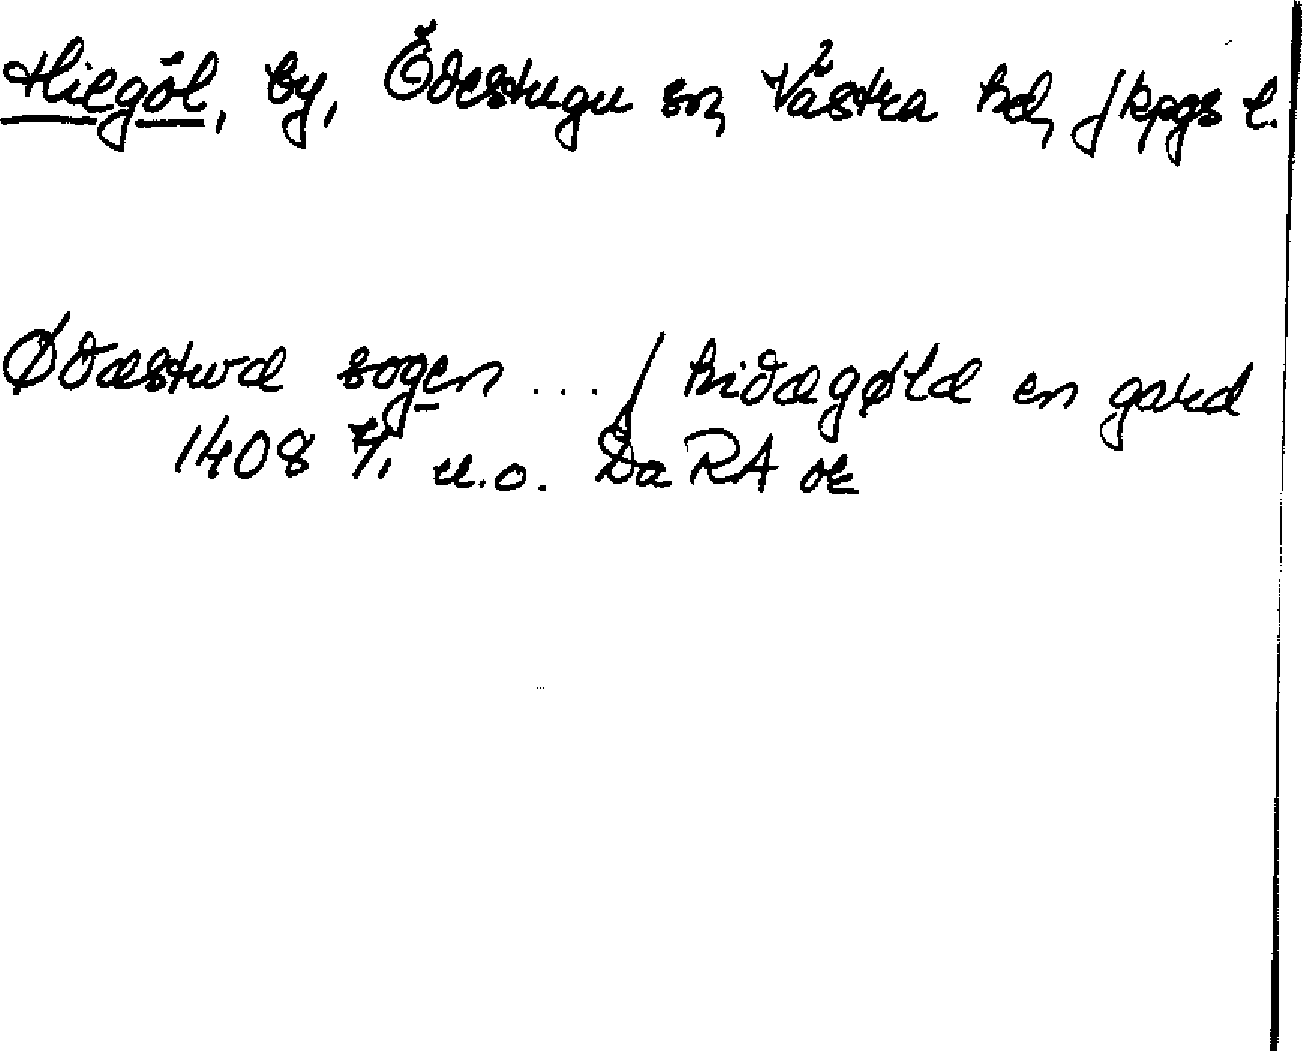 Hiegöl, by, Ödestugu sn, Västra hd, Jkpgs l.
Ødæstwæ sogen ... J hidægølæ en gard
1408 7/1 u.o. Da RA or